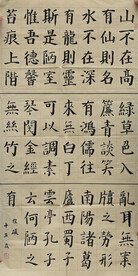 山不在高
有仙則名
水不在深
有龍則靈
斯是陋室
惟吾德馨
苔痕上階
綠草色入
簾青談笑
有鴻儒往
來無白丁
可以調素
琴閱金經
無絲竹之
亂耳無案
牘之勞形
南陽諸葛
廬西蜀子
雲亭孔子
云何陋之
有